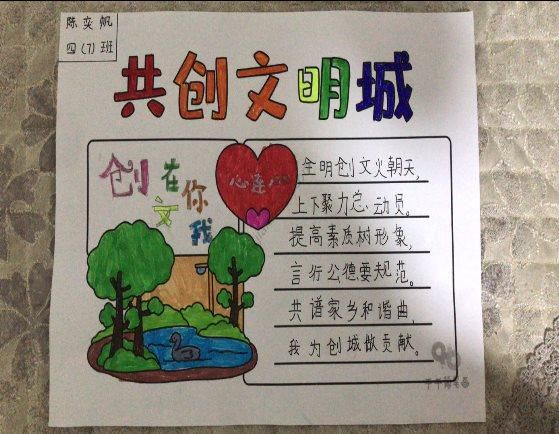 陈奕帆
四(7)班
共创文明城
创在你
文我
心连心
全明创文火朝天,
上下聚力总动员。
提高素质树形象,
言行公德要规范。
共谱家乡和谐曲,
我为创城做贡献。